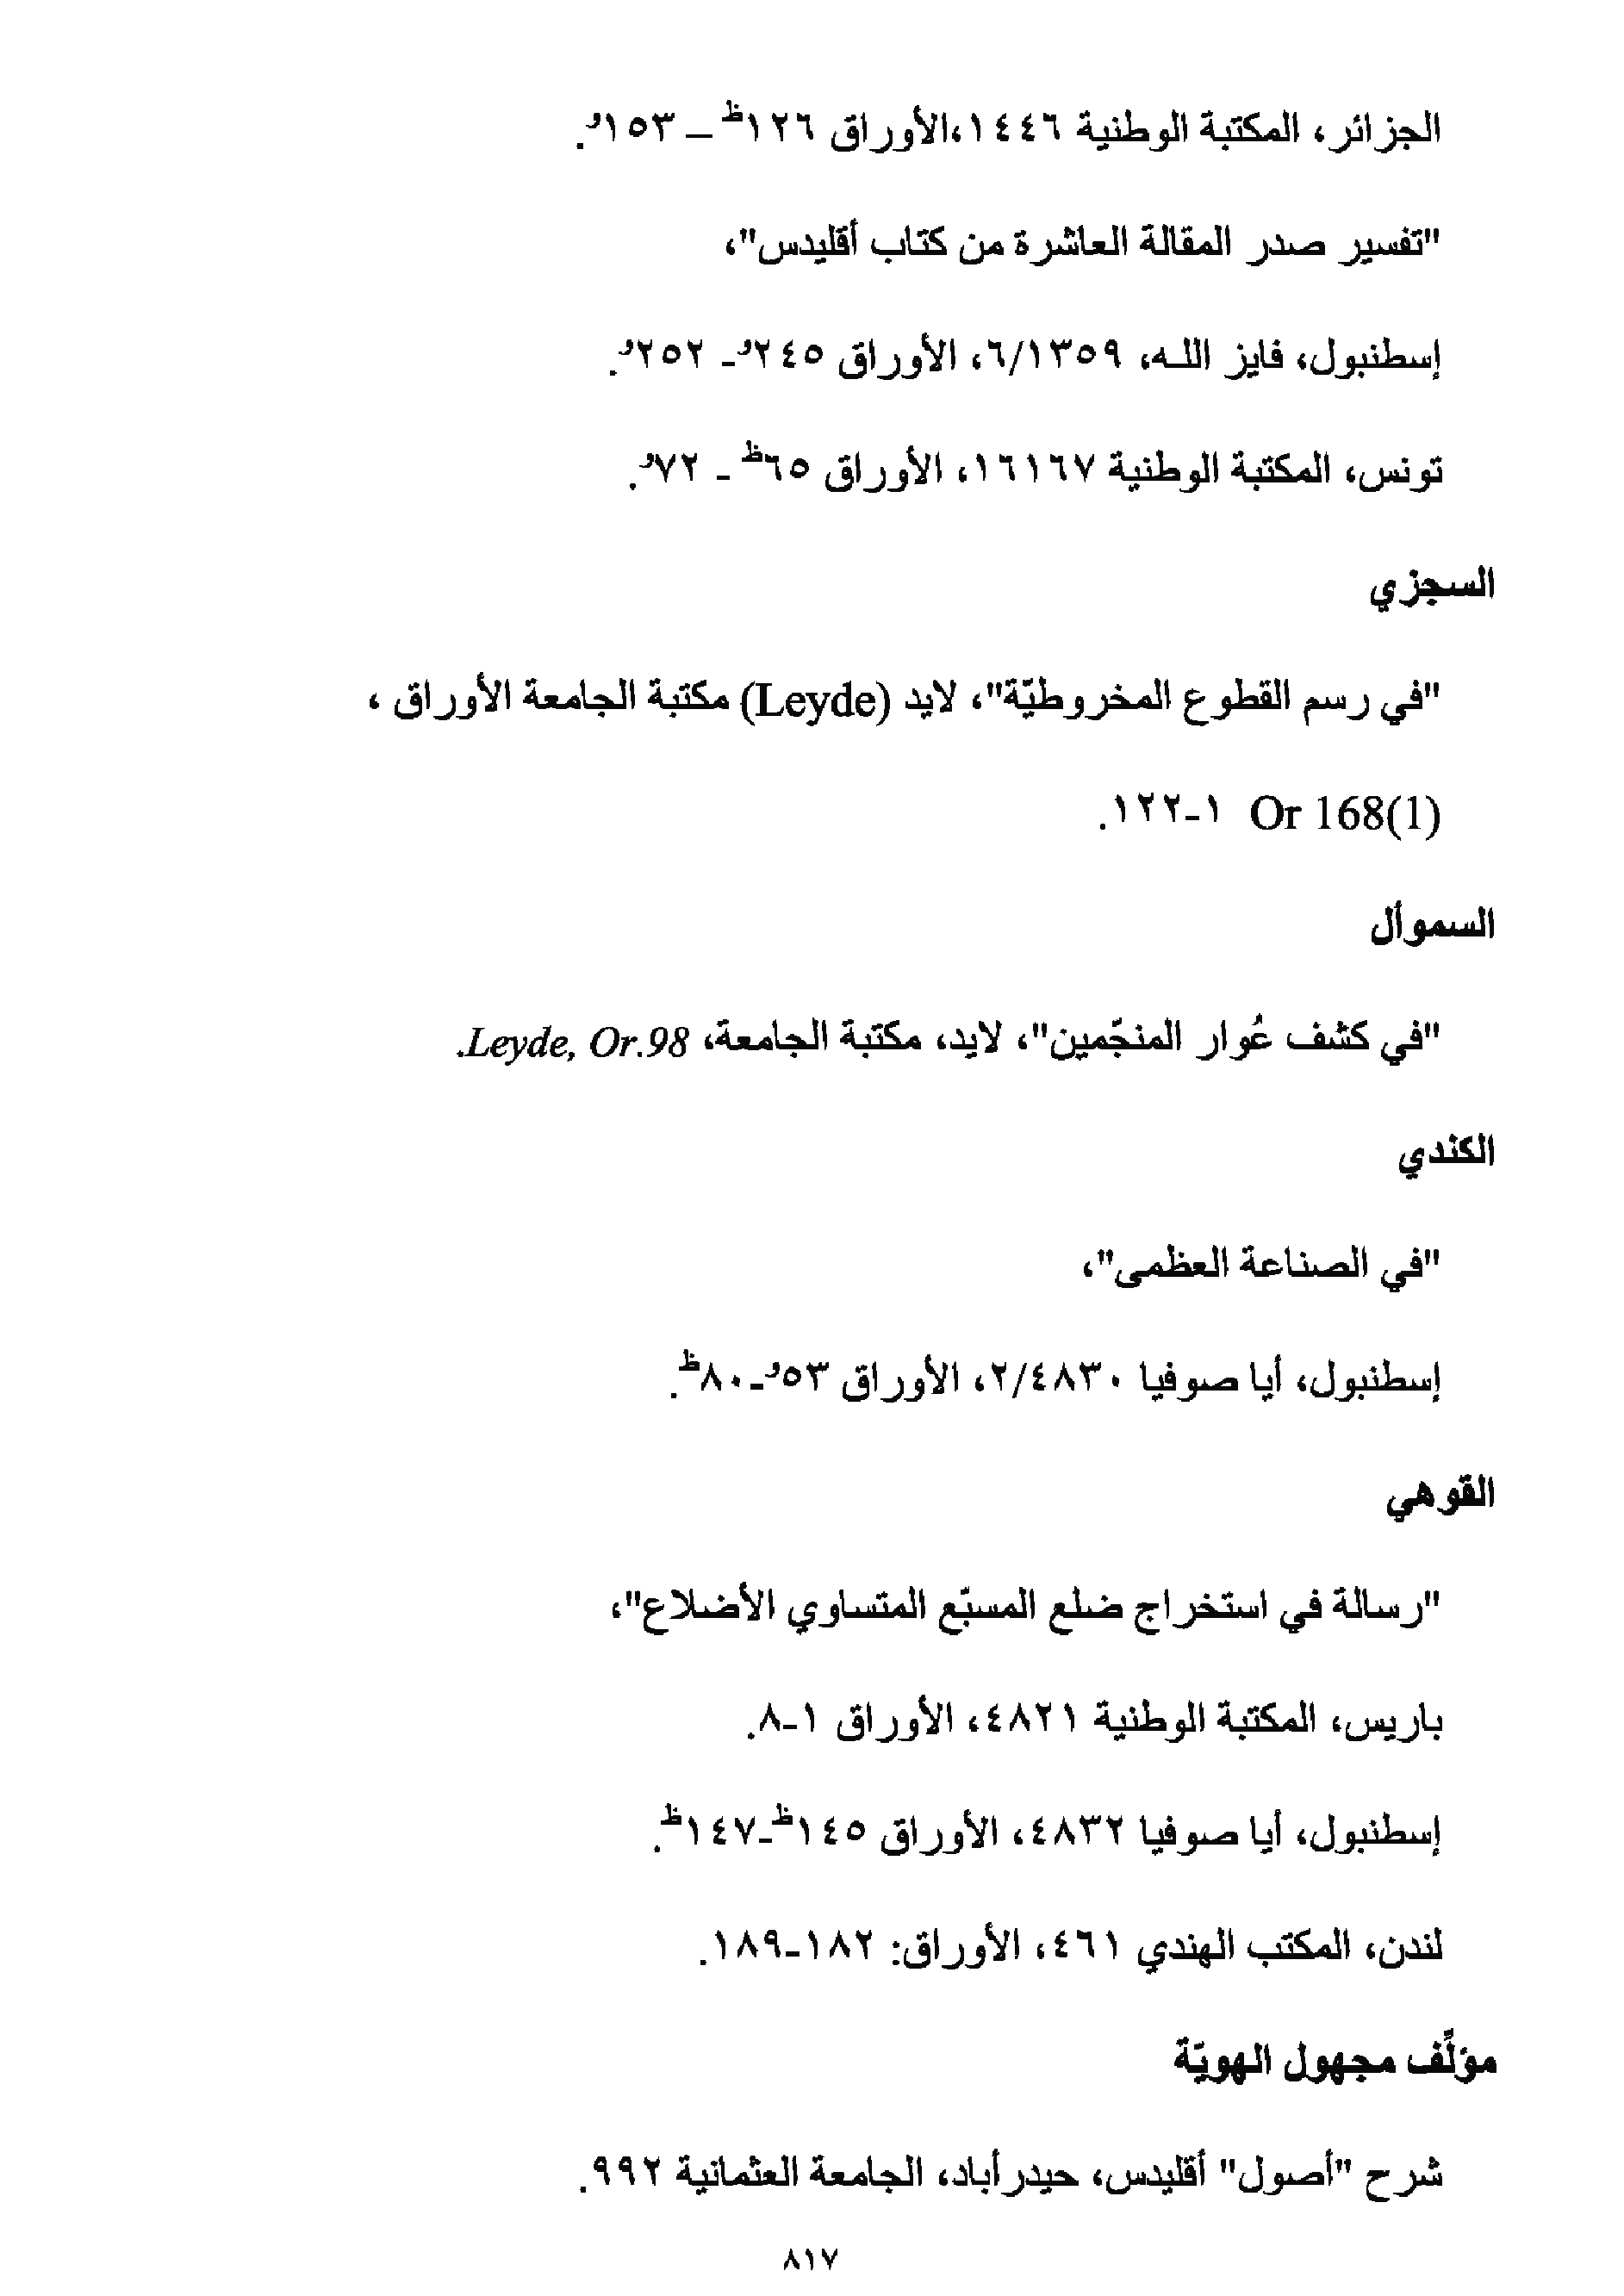 الجزائر، المكتبة الوطنية ١٤٤٦،الأوراق ١٢٦ظ – ١٥٣و.
"تفسير صدر المقالة العاشرة من كتاب أقليدس"،
إسطنبول، فايز اللـه، ٦/١٣٥٩، الأوراق ٢٤٥و- ٢٥٢و.
تونس، المكتبة الوطنية ١٦١٦٧، الأوراق ٦٥ظ - ٧٢و.
السجزي
"في رسم القطوع المخروطيّة"، لايد (Leyde) مكتبة الجامعة الأوراق ،
Or 168(1) ١-١٢٢.
السموأل
"في كشف عُوار المنجّمين"، لايد، مكتبة الجامعة، Leyde, Or.98.
الكندي
"في الصناعة العظمى"،
إسطنبول، أيا صوفيا ٢/٤٨٣٠، الأوراق ٥٣و-٨٠ظ.
القوهي
"رسالة في استخراج ضلع المسبّع المتساوي الأضلاع"،
باريس، المكتبة الوطنية ٤٨٢١، الأوراق ١-٨.
إسطنبول، أيا صوفيا ٤٨٣٢، الأوراق ١٤٥ظ-١٤٧ظ.
لندن، المكتب الهندي ٤٦١، الأوراق: ١٨٢-١٨٩.
مؤلِّف مجهول الهويّة
شرح "أصول" أقليدس، حيدرأباد، الجامعة العثمانية ٩٩٢.
٨١٧